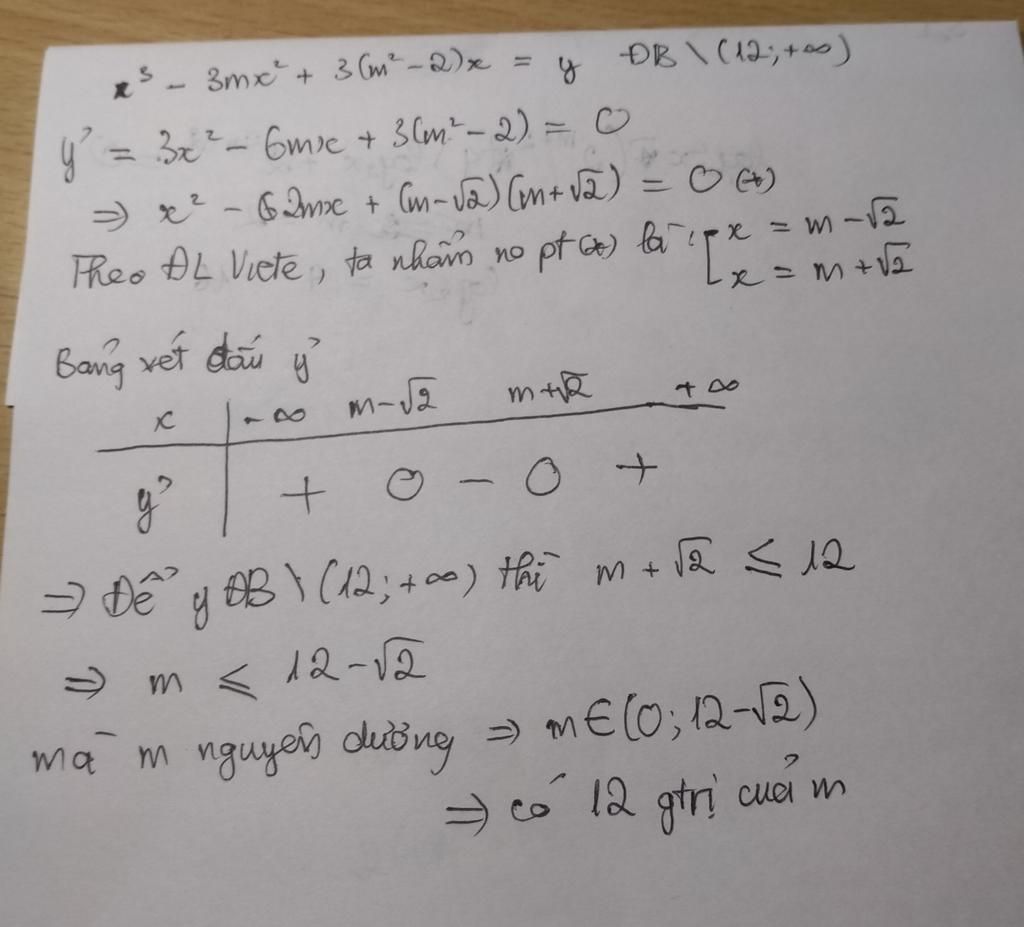 x³ - 3mx² + 3(m² - 2)x = y ĐB \ (12; +∞)
y' = 3x² - 6mx + 3(m² - 2) = 0
⇒ x² - 2mx + (m - √2)(m + √2) = 0 (*)
Theo ĐL Viete, ta nhẩm no pt (*) là: [ x = m - √2
x = m + √2
Bảng xét dấu y'
x | -∞ m - √2 m + √2 +∞
y' | + 0 - 0 +
⇒ Để y ĐB \ (12; +∞) thì m + √2 ≤ 12
⇒ m ≤ 12 - √2
mà m nguyên dương ⇒ m ∈ (0; 12 - √2)
⇒ có 12 gtrị của m